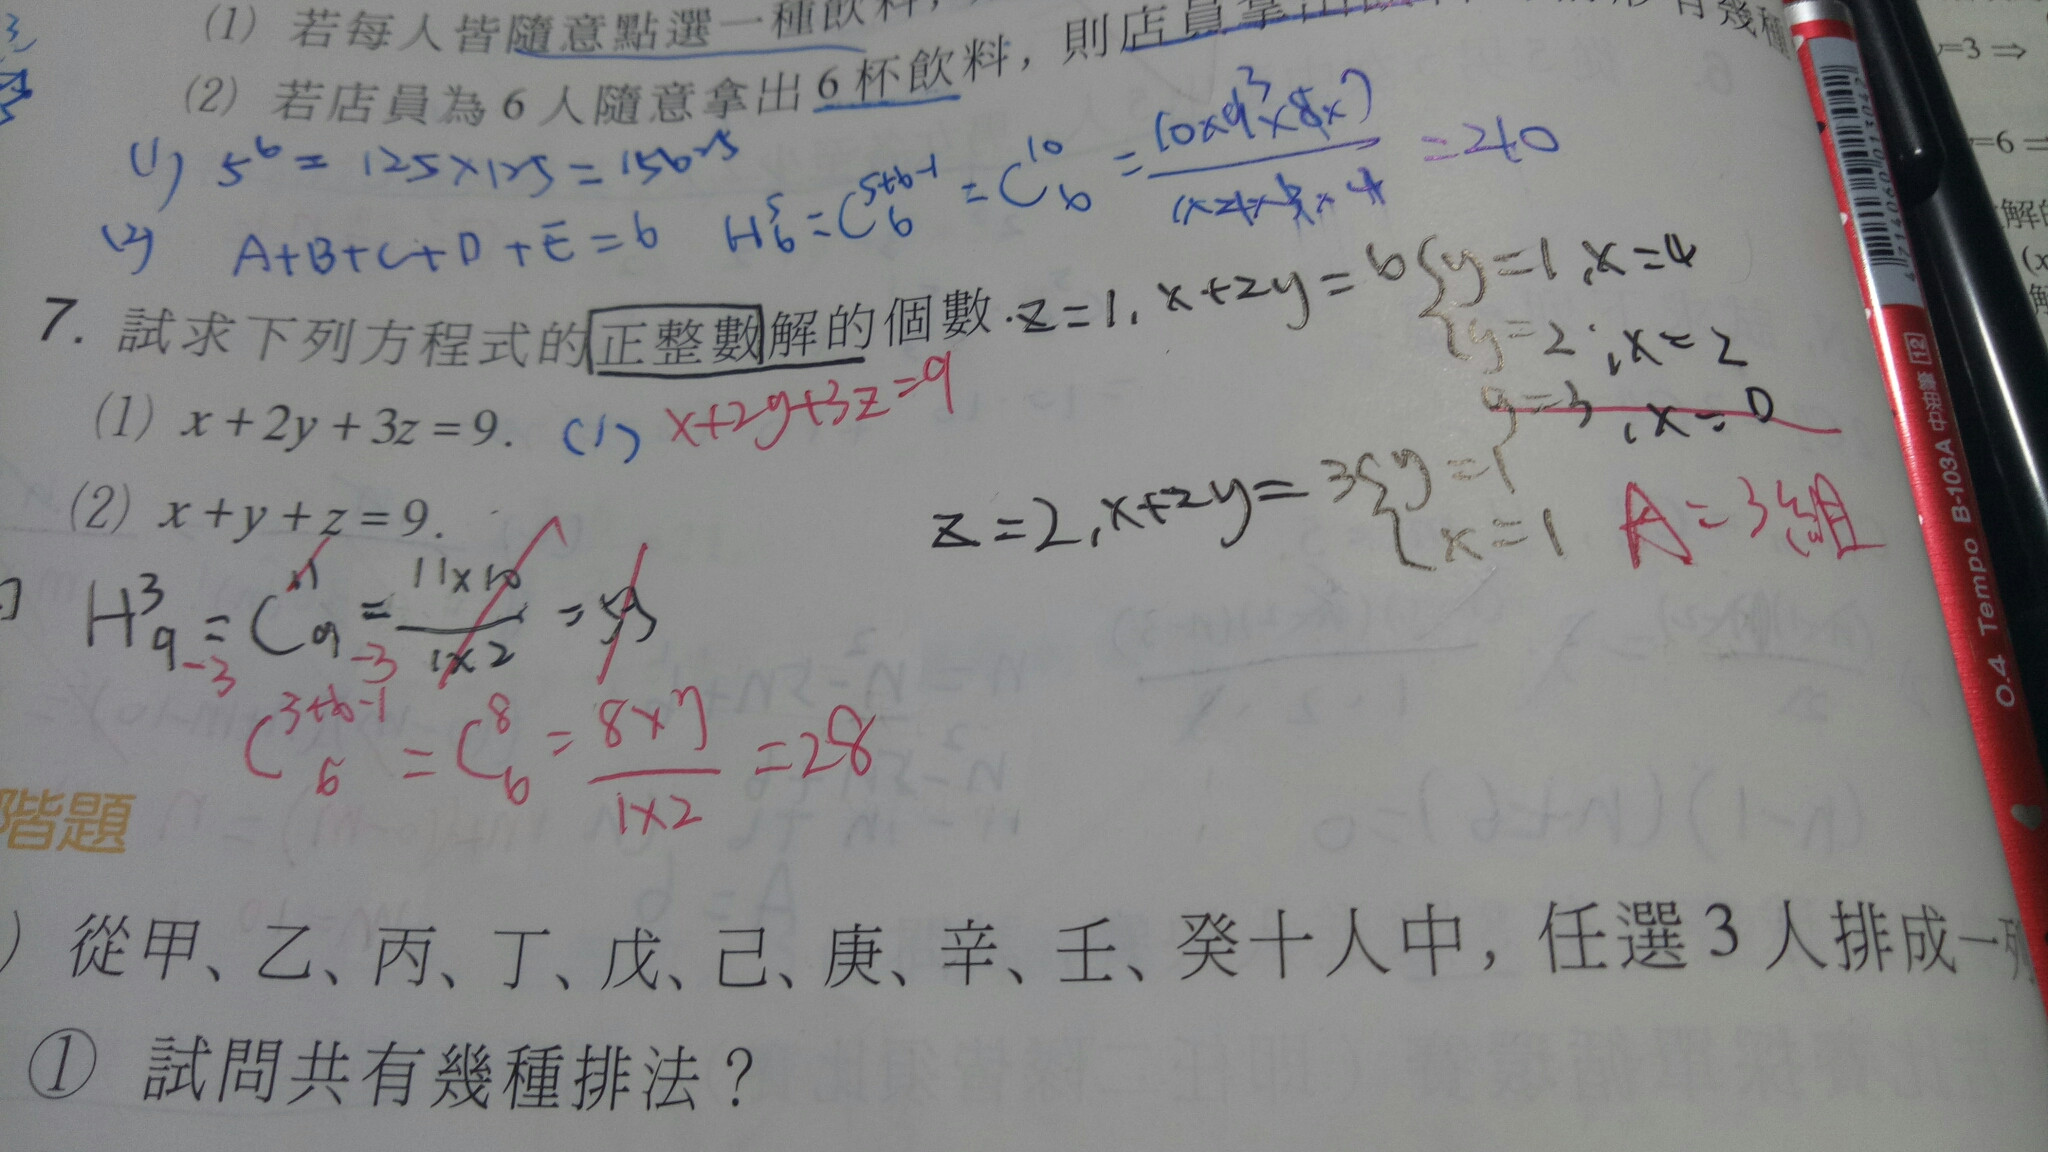 (1) 若每人皆隨意點選一種飲料,
(2) 若店員為 6 人隨意拿出 6 杯飲料, 則店員拿出
有幾種
(1) 5^6 = 125×125 = 15625
(2) A+B+C+D+E=6 H^5_6 = C^{5+6-1}_6 = C^{10}_6 = = 210
7. 試求下列方程式的正整數解的個數.
z=1, x+2y=6 { y=1, x=4
y=2, x=2
y=3, x=0
(1) x+2y+3z=9. (1) x+2y+3z=9
z=2, x+2y=3 { y=1
x=1 A=3組
(2) x+y+z=9.
H^3_{9-3} = C^{11}_{9-3} = 11×10 / 1×2 = 55
C^{3+6-1}_6 = C^8_6 = 8×7 / 1×2 = 28
階題
) 從甲、乙、丙、丁、戊、己、庚、辛、壬、癸十人中, 任選 3 人排成一列
① 試問共有幾種排法?
0.4 Tempo B-103A 中油筆 12
4714060
=3 ⇒
=6 ⇒